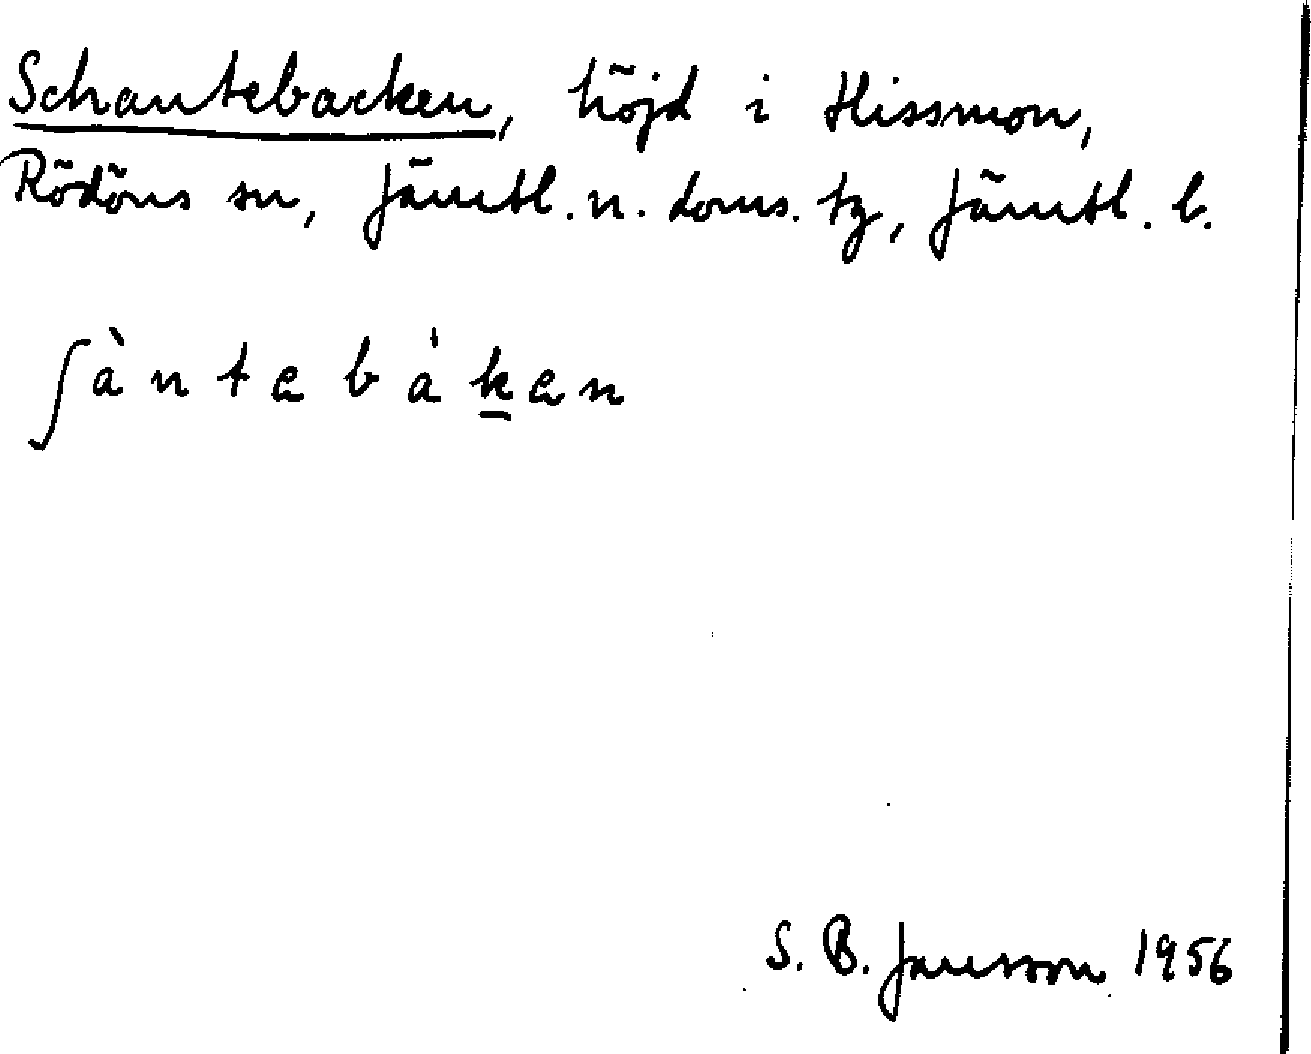 Schantebacken, höjd i Hissmon,
Rödöns sn, Jämtl. n. doms. tg, Jämtl. l.
ʃàntebàk̲en
S. B. Jansson 1956